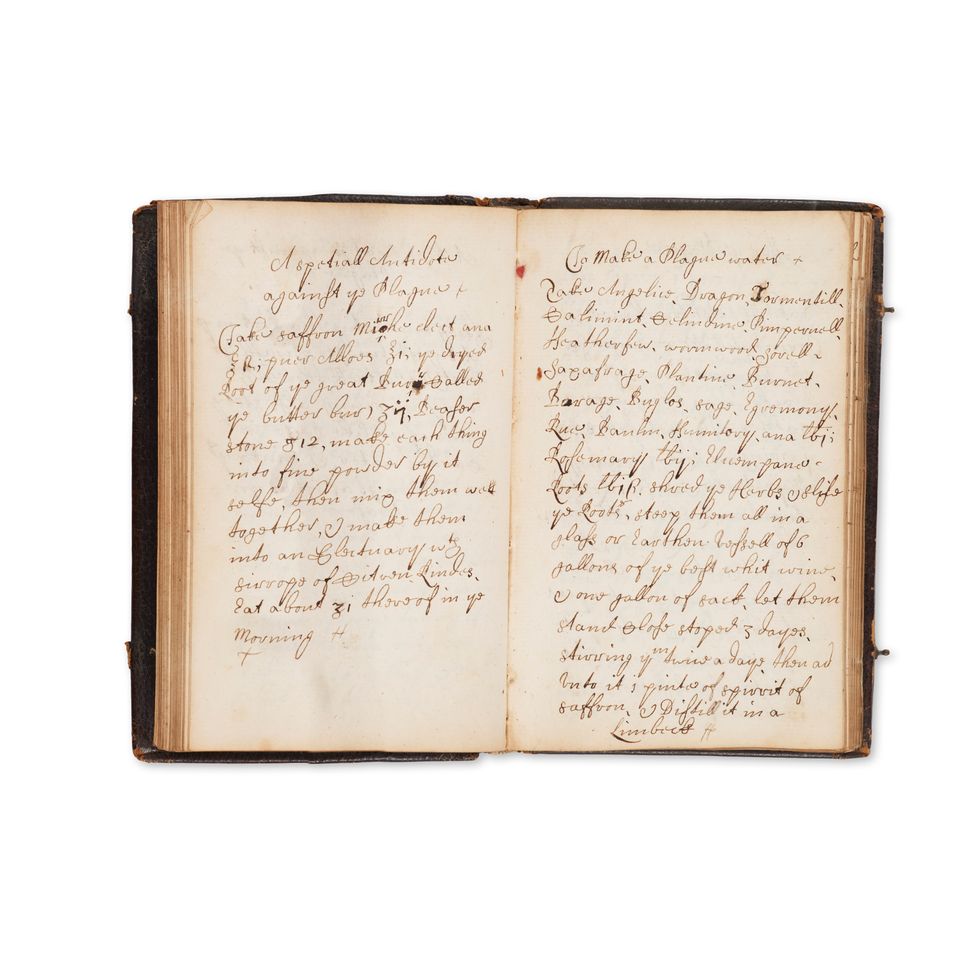 A spetiall Antidote
against ye Plague +
Take saffron Mirrhe elect ana
puer Alloes ʒi; ye dryed
Root of ye great Burr called
ye butter bur) ʒij, Beasar
stone g 12, make each thing
into fine powder by it
selfe, then mix them well
together, & make them
into an Electuary wth
sirrope of Sitren Rindes.
Eat about ʒi there of in ye
Morning #
+
To Make a Plague water +
Take Angelice, Dragon, Tormentill,
Salimint, Selindine, Pimpernell,
Heatherfew, wormwood, sorell,
Saxafrage, Plantine, Burnet,
Borage, Buglos, sage, Egremony,
Rue, Baulm, Humitory, ana lbj;
Rosemary lbij; Eluempane
Roots lbiß, shred ye Herbs & slise
ye Roots, steep them all in a
glass or Earthen Vessell of 6
gallons of ye best whit wine,
& one gallon of sack, let them
stand Close stoped 3 dayes,
stirring ym twice a daye, then ad
Vnto it 1 pinte of spirrit of
saffron, & Distill it in a
Limbeck #